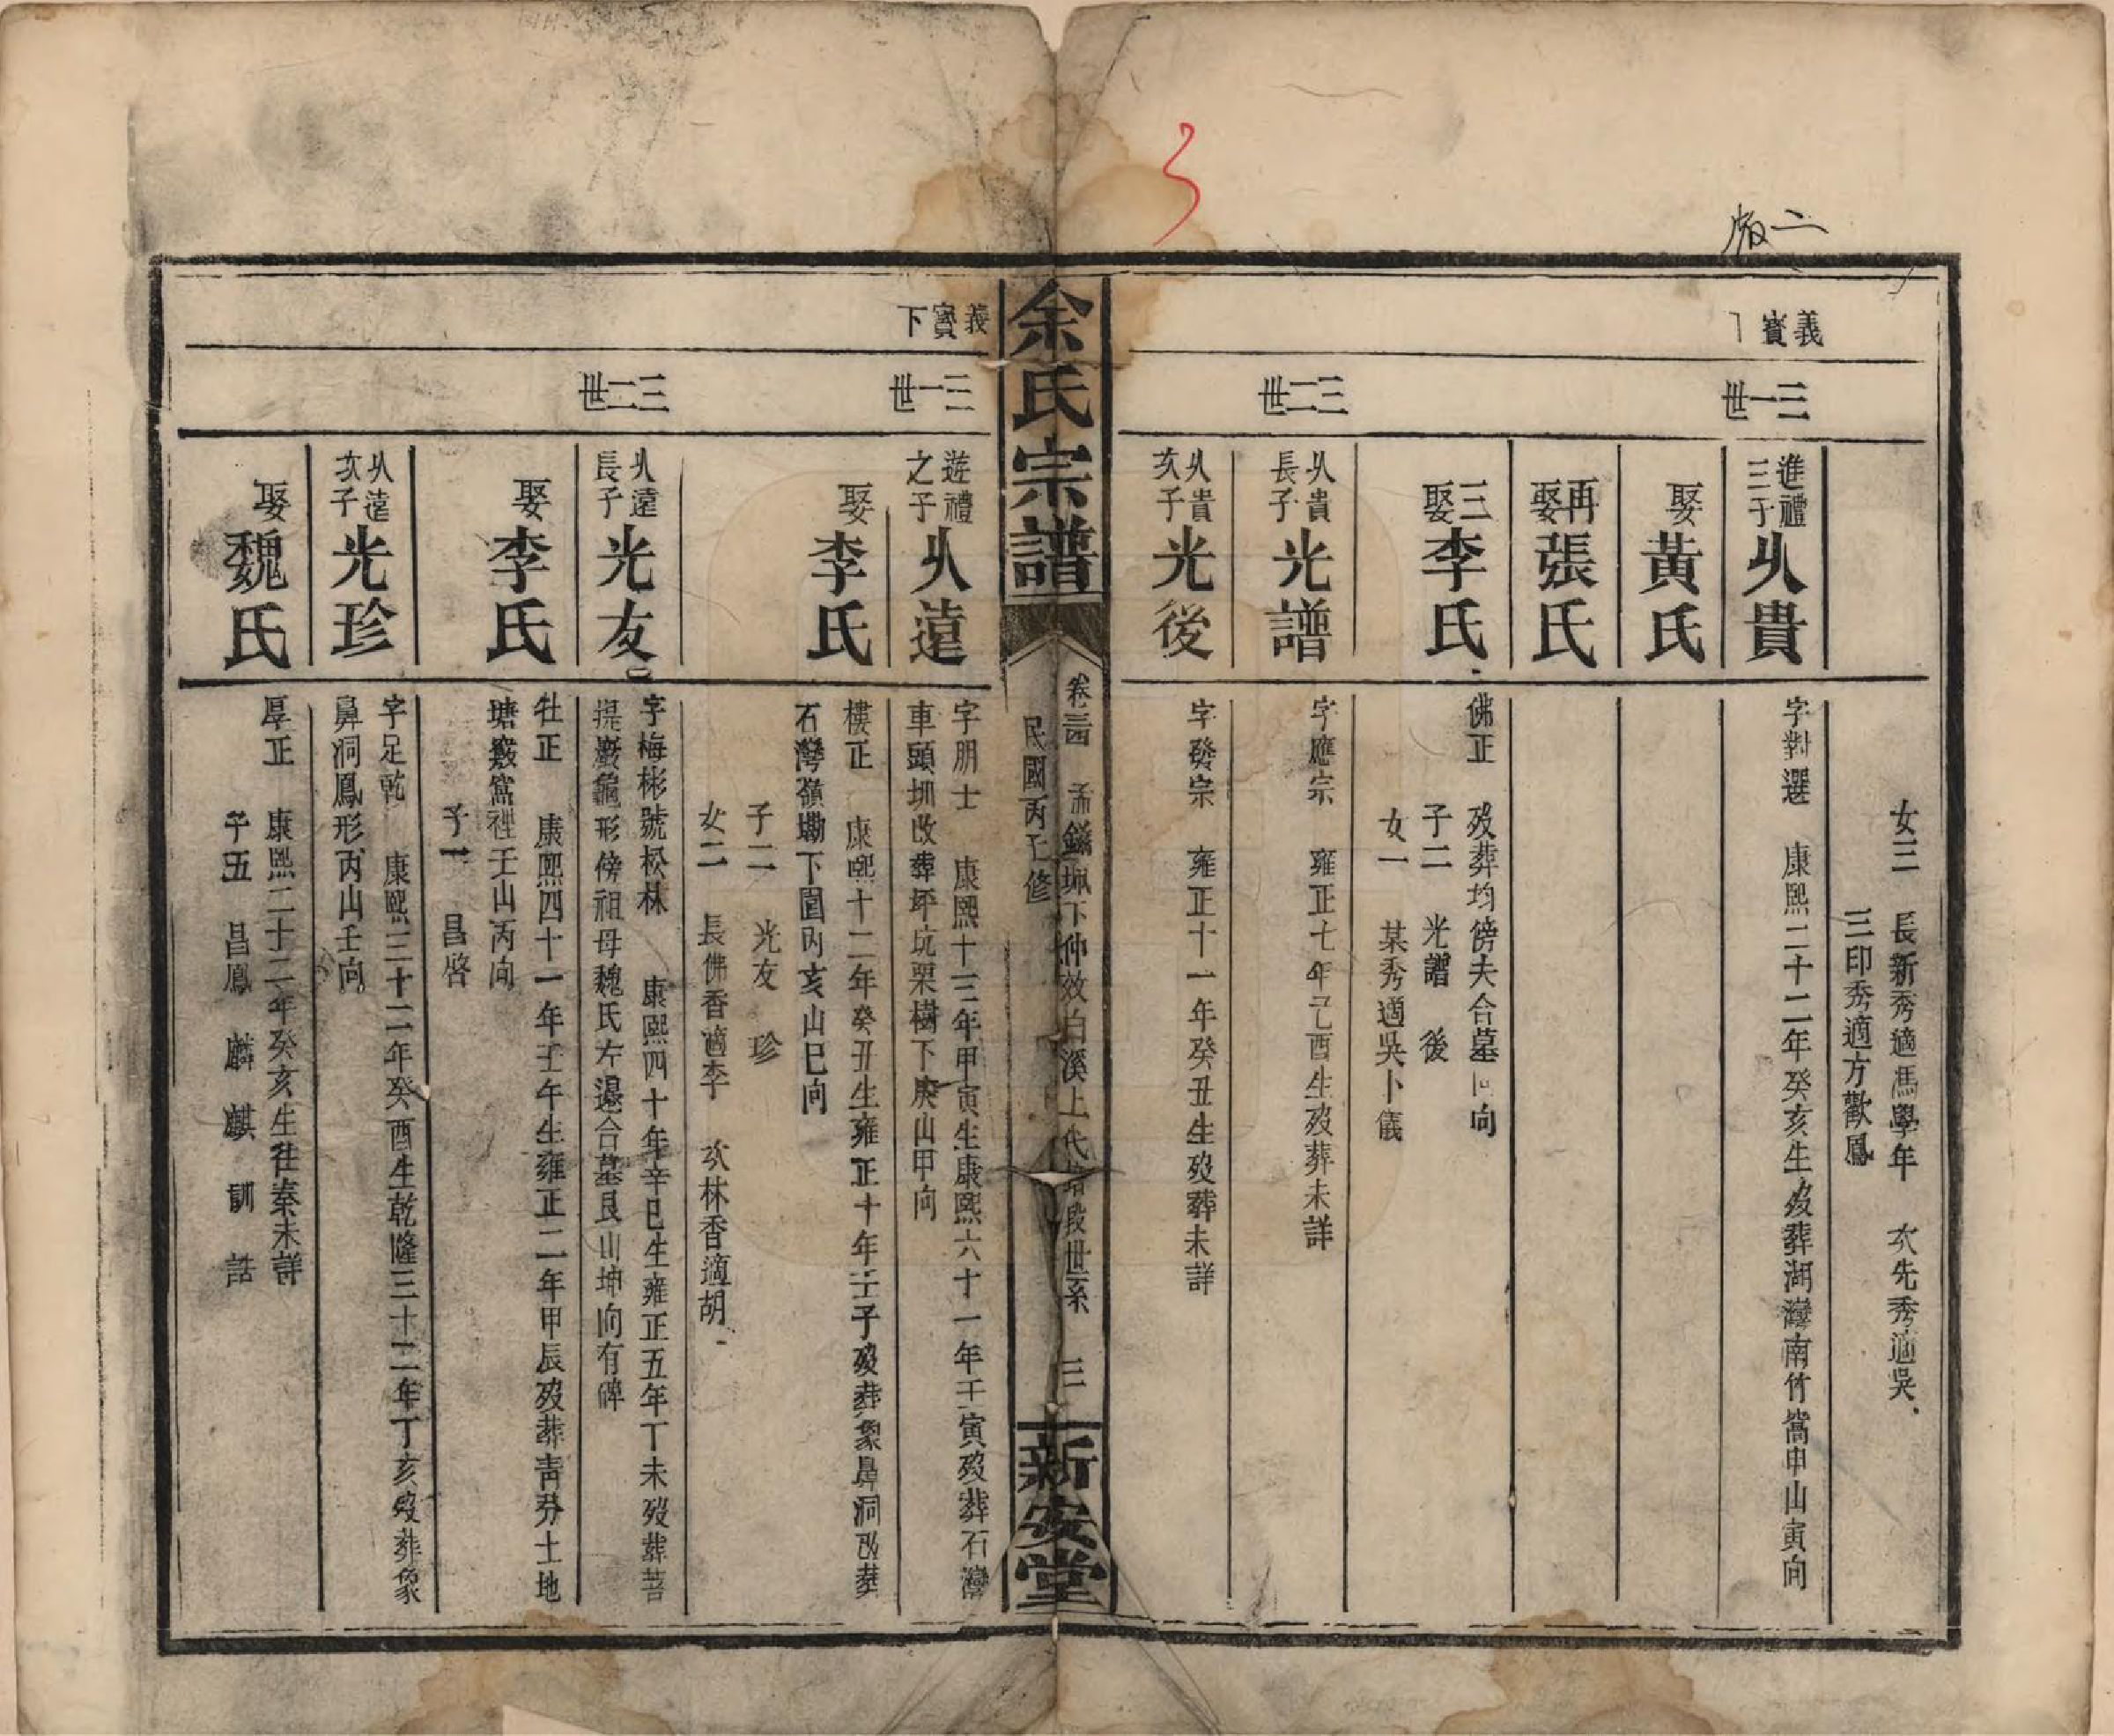 二版
義寶下
三一世
三二世
女三　長新秀適馮學年　次先秀適吳
三印秀適方歡鳳
進禮三子　从貴
字對選　康熙二十二年癸亥生歿葬湖灣南竹窩申山寅向
娶黃氏
再娶張氏
三娶李氏
佛正　歿葬均傍夫合墓向
子二　光譜　後
女一　某秀適吳卜儀
从貴長子　光譜
字應宗　雍正七年己酉生歿葬未詳
从貴次子　光後
字發宗　雍正十一年癸丑生歿葬未詳
余氏宗譜
卷三四　孟鎰珮下仲效白溪上代培段世系　三
民國丙子修
新安堂
義寶下
三一世
三二世
遊禮之子　从遠
字朋士　康熙十三年甲寅生康熙六十一年壬寅歿葬石灣
車頭圳改葬坪坑栗樹下庚山甲向
娶李氏
樓正　康熙十二年癸丑生雍正十年壬子歿葬象鼻洞改葬
石灣嶺墈下園內亥山巳向
子二　光友　珍
女二　長佛香適李　次林香適胡
从遠長子　光友
字梅彬號松林　康熙四十年辛巳生雍正五年丁未歿葬菩
提巖龜形傍祖母魏氏左邊合墓艮山坤向有碑
娶李氏
牡正　康熙四十一年壬午生雍正二年甲辰歿葬青勞土地
塘竅窩裡壬山丙向
子一　昌啓
从遠次子　光珍
字足乾　康熙三十二年癸酉生乾隆三十二年丁亥歿葬象
鼻洞鳳形丙山壬向
娶魏氏
厚正　康熙二十二年癸亥生往秦未詳
子五　昌鳳　麟　麒　訓　話